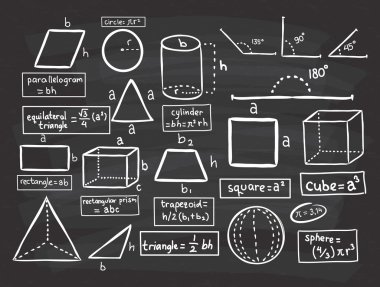 b
h
parallelogram
=bh
circle=πr²
r
b
h
cylinder
=bh=π²rh
135°
90°
45°
180°
a
a
a
equilateral
triangle = √3/4 (a²)
a
b
rectangle=ab
b
a
c
rectangular prism =
abc
b₂
h
b₁
trapezoid=
h/2(b₁+b₂)
a
a
square=a²
a
cube=a³
b
h
triangle=1/2 bh
r
π=3,14
sphere=
(4/3)πr³